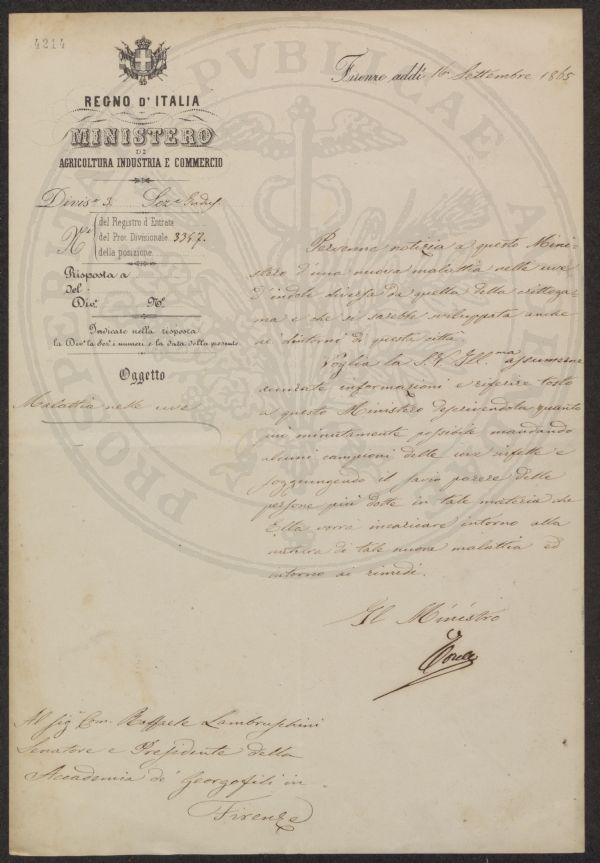 4214
Firenze addì 16 Settembre 1865
REGNO D'ITALIA
MINISTERO
DI
AGRICOLTURA INDUSTRIA E COMMERCIO
Divis.e 3.
N.ri
del Registro d'Entrata
del Prot. Divisionale 3347.
della posizione
Risposta a
del
Div.e N.o
Indicare nella risposta
la Div.e la Sez.e i numeri e la data della presente
Oggetto
Malattia nelle uve
Pervenne notizia a questo Mini-
stero d'una nuova malattia nelle uve
d'indole diversa da quella della crittoga-
ma e che si sarebbe sviluppata anche
ne' dintorni di questa città.
Voglia la S.V. Ill.ma assumerne
accurate informazioni e riferire tosto
a questo Ministero descrivendola quanto
più minutamente possibile mandando
alcuni campioni delle uve infette e
soggiungendo il savio parere delle
persone più dotte in tale materia che
Ella vorrà incaricare intorno alla
natura di tale nuova malattia ed
intorno ai rimedi.
Il Ministro
Torelli
Al Sig. Com. Raffaele Lambruschini
Senatore e Presidente della
Accademia de' Georgofili in
Firenze